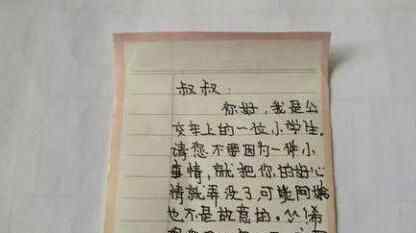 叔叔：
你好，我是公
交车上的一位小学生。
请您不要因为一件小
事情，就把你的好心
情就弄没了，可能阿姨
也不是故意的。